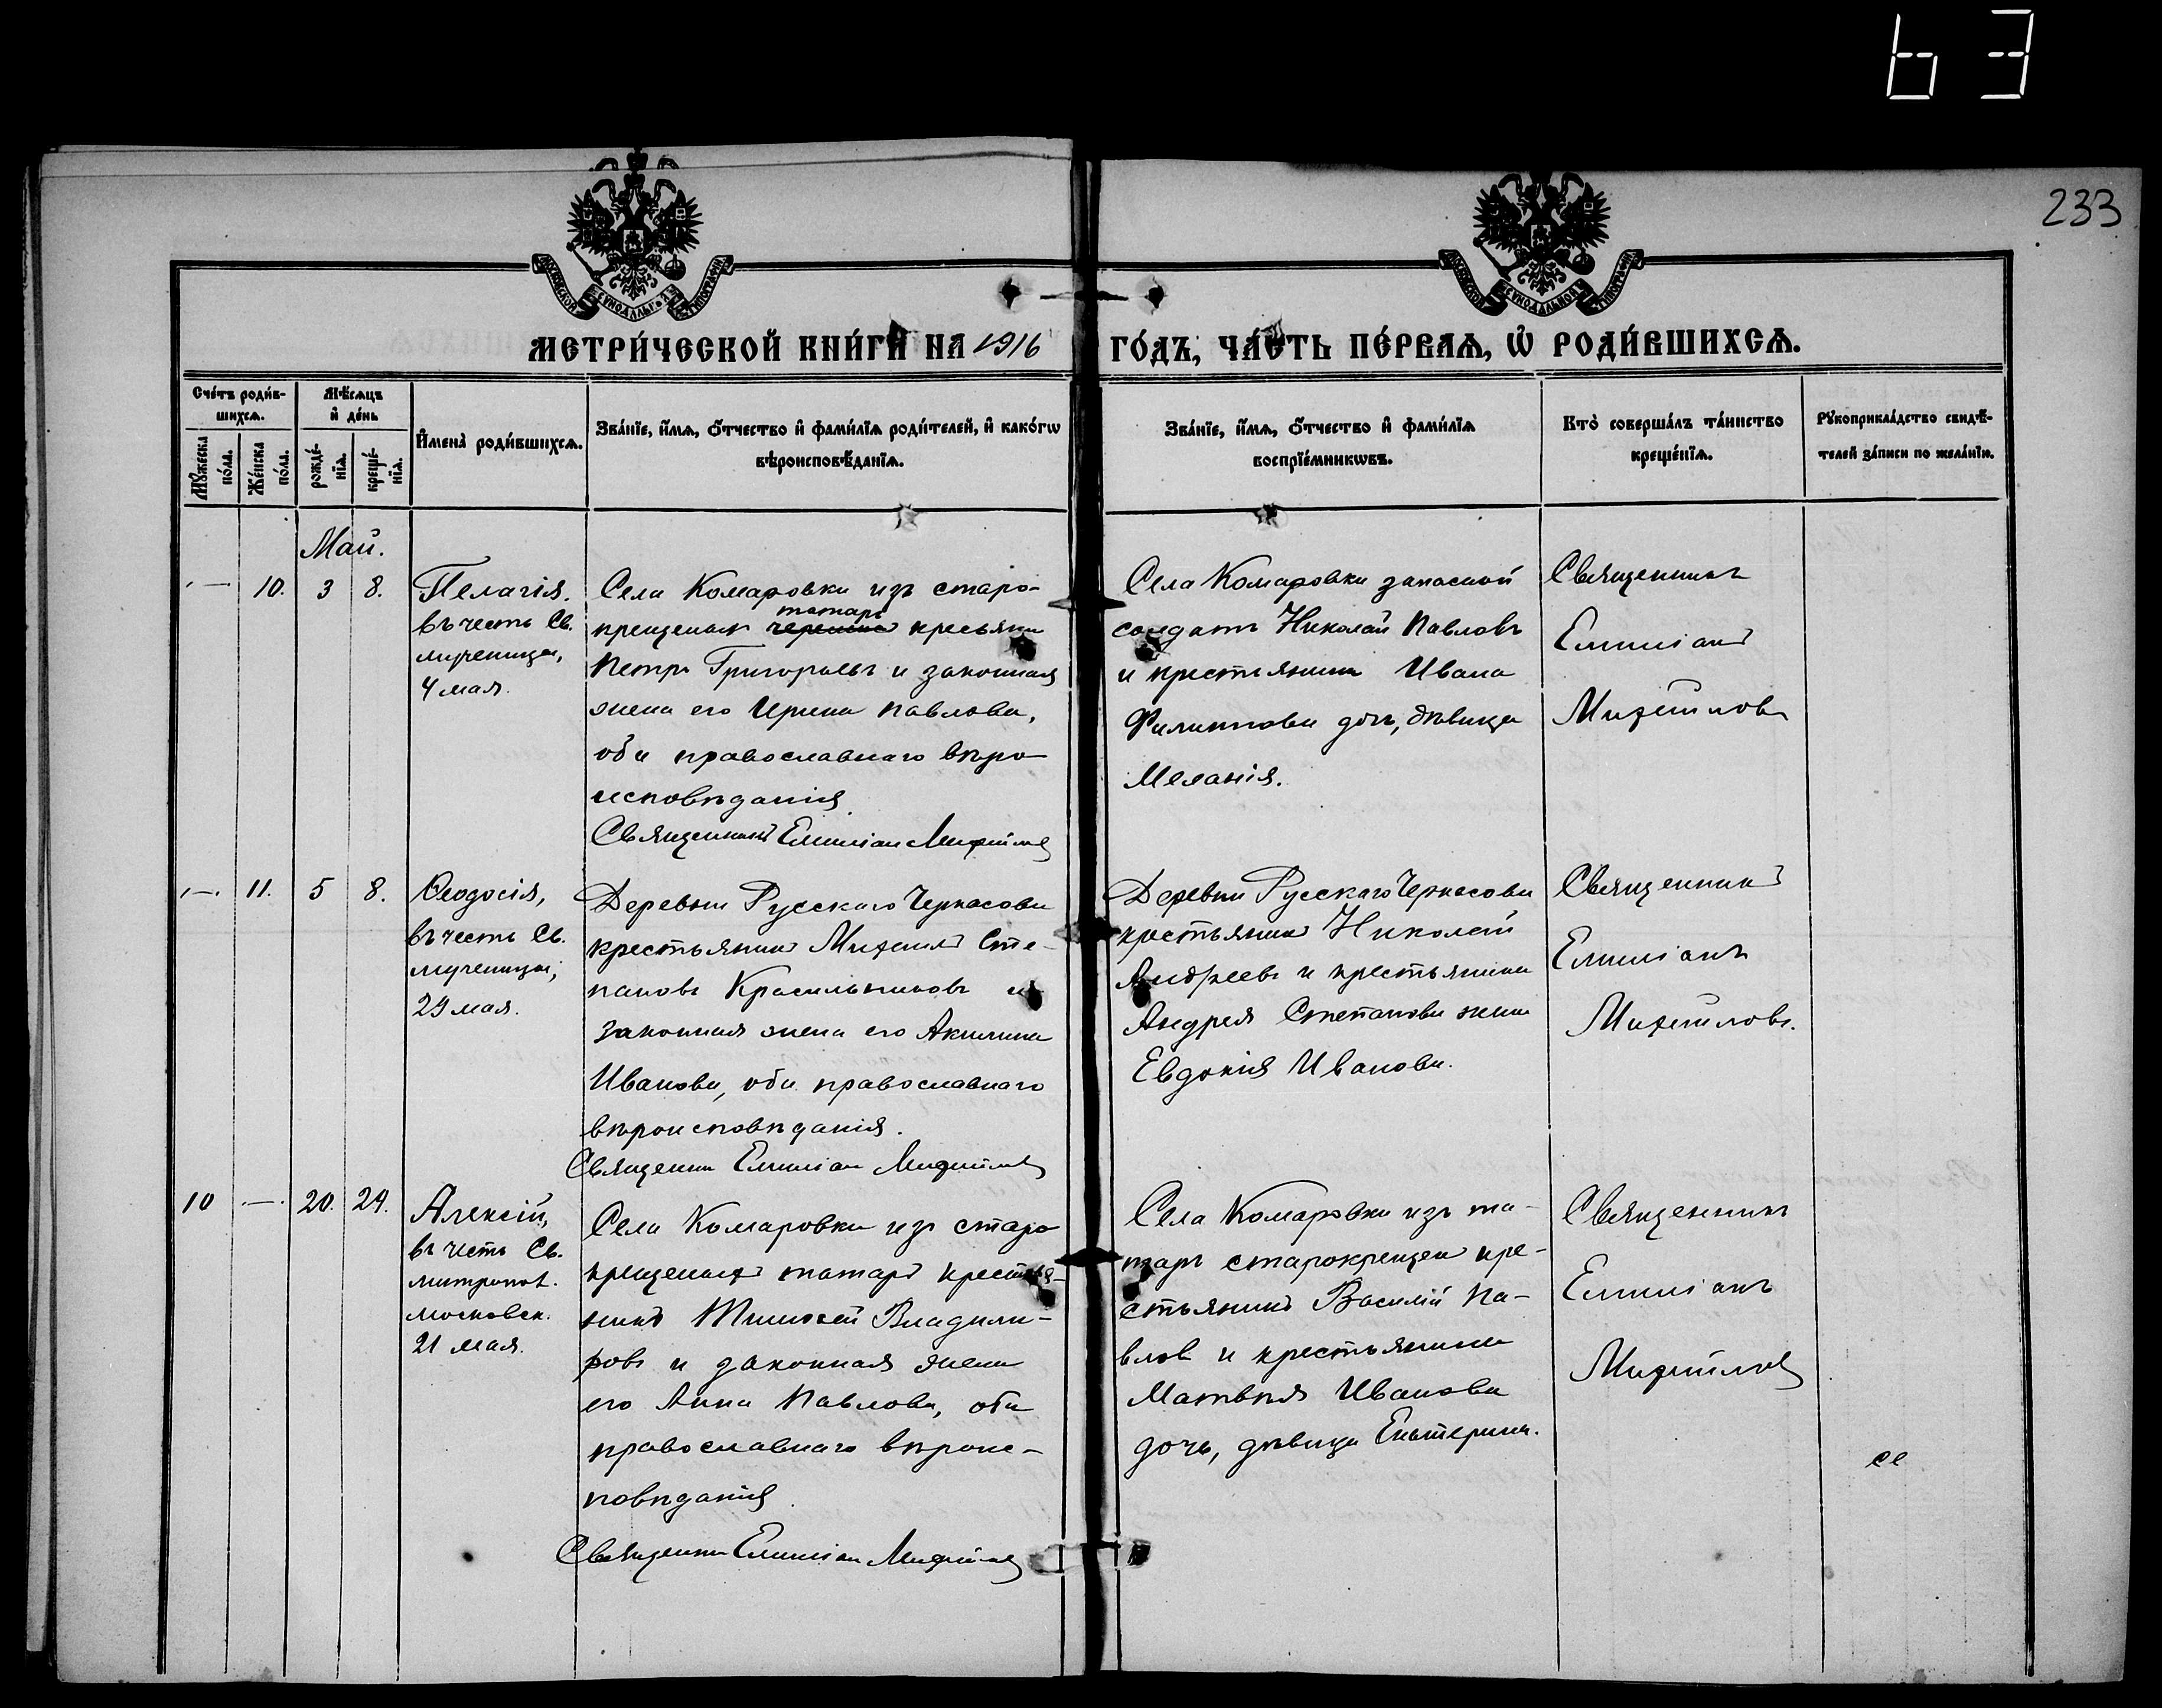 63
233
МЕТРИ́ЧЕСКОЙ КНИ́ГИ НА 1916 ГО́ДЪ, ЧА́СТЬ ПЕ́РВАѦ, Ѡ҆ РОДИ́ВШИХСѦ.
Сче́тъ роди́в-
шихсѧ.
Мꙋ́жеска
по́ла.
Же́нска
по́ла.
Мѣ́сѧцъ
и҆ де́нь
рожде́-
нїѧ.
креще́-
нїѧ.
И҆мена̀ роди́вшихсѧ.
Зва́нїе, и҆́мѧ, ѻ҆́тчество и҆ фами́лїѧ роди́телей, и҆ како́гѡ
вѣроисповѣ́данїѧ.
Зва́нїе, и҆́мѧ, ѻ҆́тчество и҆ фами́лїѧ
воспрїе́мникѡвъ.
Кто̀ соверша́лъ та́инство
креще́нїѧ.
Рꙋкоприкла́дство свидѣ́-
телей за́писи по жела́нїю.
Май.
— 10. 3 8.
Пелагія.
въ честь Св.
мученицы,
4 мая.
Села Комаровки изъ старо-
татаръ
крещеных черемис кресьянин
Петръ Григорьевъ и законная
жена его Ирина Павлова,
оба православнаго вѣро-
исповѣданія
Священникъ Емиліан Михайлов
Села Комаровки запасной
солдатъ Николай Павловъ
и крестьянина Ивана
Филиппова доч, дѣвица
Меланія.
Священникъ
Емиліанъ
Михайловъ
— 11. 5 8.
Ѳеодосія,
въ честь Св.
мученицы,
29 мая.
Деревни Русскаго Черкасова
крестьянинъ Михаилъ Сте-
пановъ Красильниковъ и
законная жена его Акилина
Иванова, оба православнаго
вѣроисповѣданія.
Священник Емилиан Михайлов
Деревни Русскаго Черкасова
крестьянинъ Николай
Андреевъ и крестьянина
Андрея Степанова жена
Евдокія Иванова.
Священникъ
Емиліанъ
Михайловъ.
10 — 20. 24.
Алексій,
въ честь Св.
митропол.
московск.
21 мая.
Села Комаровки изъ старо
крещеныхъ татаръ крестья-
нинъ Тимоѳей Владими-
ровъ и законная жена
его Анна Павлова, оба
православнаго вѣроис-
повѣданія
Священник Емиліан Михайлов
Села Комаровки изъ та-
таръ старокрещен кре-
стьянинъ Василій Па-
влов и крестьянина
Матвѣя Иванова
дочь, дѣвица Екатерина.
Священникъ
Емиліанъ
Михайлов